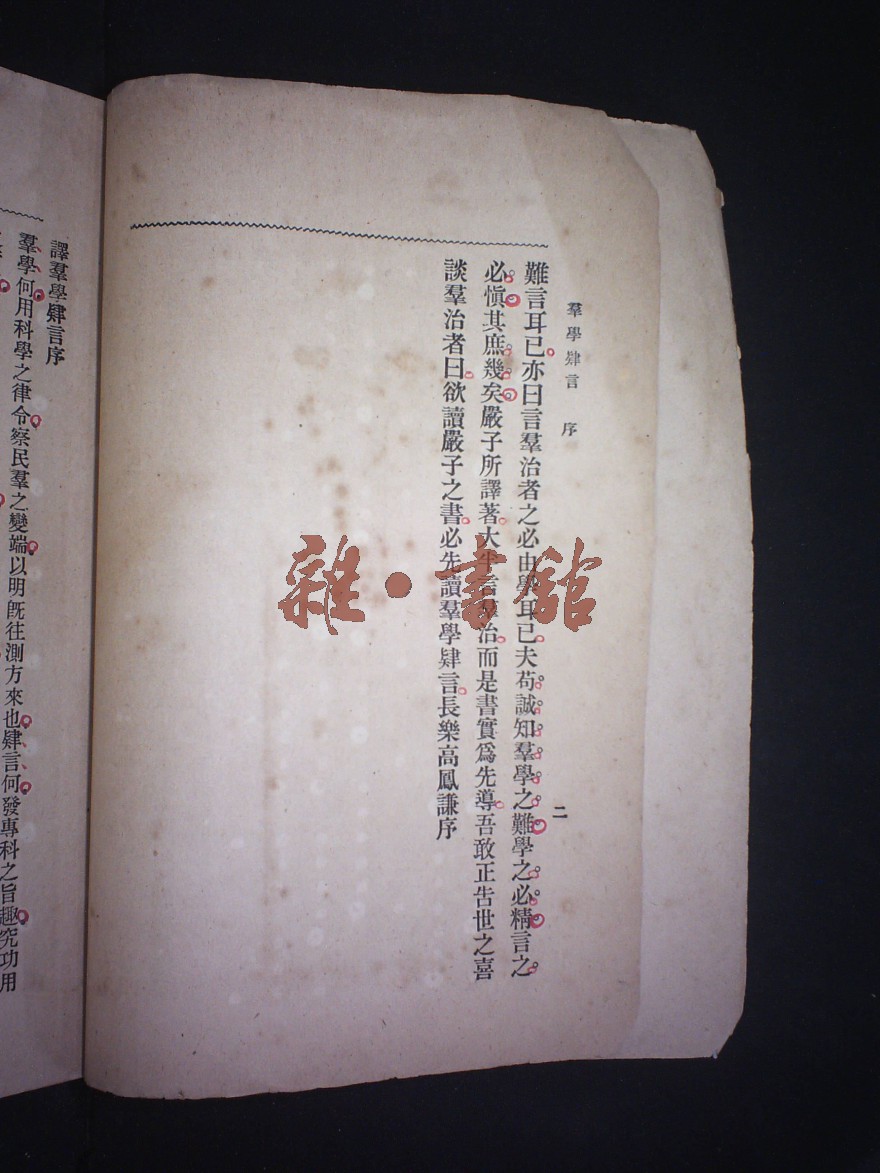 羣學肄言 序 二
難言耳已亦曰言羣治者之必由學耳已夫苟誠知羣學之難學之必精言之
必愼其庶幾矣嚴子所譯著大半言羣治而是書實爲先導吾敢正告世之喜
談羣治者曰欲讀嚴子之書必先讀羣學肄言長樂高鳳謙序
譯羣學肄言序
羣學何用科學之律令察民羣之變端以明旣往測方來也肄言何發專科之旨趣究功用
雜·書館